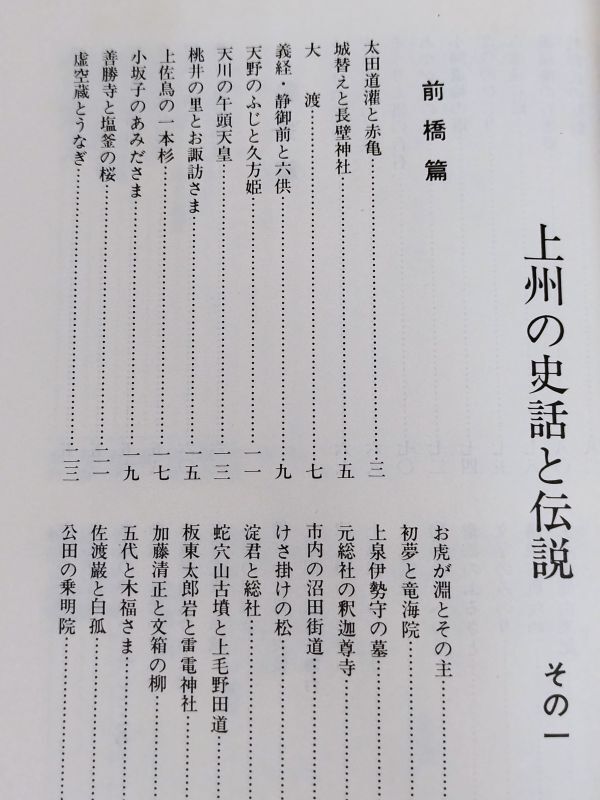 上州の史話と伝説 その一
前橋篇
太田道灌と赤亀……三
城替えと長壁神社……五
大渡……七
義経・静御前と六供……九
天野のふじと久方姫……一一
天川の午頭天皇……一三
桃井の里とお諏訪さま……一五
上佐鳥の一本杉……一七
小坂子のあみださま……一九
善勝寺と塩釜の桜……二一
虚空蔵とうなぎ……二三
お虎が淵とその主……
初夢と竜海院……
上泉伊勢守の墓……
元総社の釈迦尊寺……
市内の沼田街道……
けさ掛けの松……
淀君と総社……
蛇穴山古墳と上毛野田道……
板東太郎岩と雷電神社……
加藤清正と文箱の柳……
五代と木福さま……
佐渡巌と白孤……
公田の乗明院……